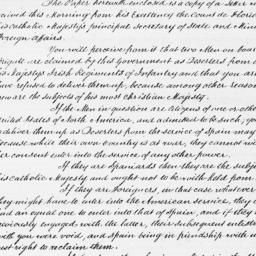 The Paper herewith enclosed is a Copy of a Letter
ceived this Morning from his Excellency the Count de Florid
his Catholic Majesty's principal Secretary of State and Mini
Foreign affairs.
You will perceive from it that two Men on boar
Brigate are claimed by this Government as Deserters from o
his Majestys Irish Regiments of Infantry and that you ar
have refused to deliver them up, because among other reaso
now are the subjects of his most Christian Majesty.
If the Men in question are Citizens of one or othe
United States of North America, and admitted to be such, you
to deliver them up as Deserters from the service of Spain may
because while their own Country is at war, they cannot wi
her consent enter into the service of any other power.
If they are Spaniards then they are the subje
his Catholic Majesty and ought not to be with held from
If they are foreigners, in that case whatever
they might have to enter into the American service, they
had an equal one to enter into that of Spain, and if they
previously engaged with the latter, their subsequent enlist
with you were void, and Spain being in friendship with u
just right to reclaim them.